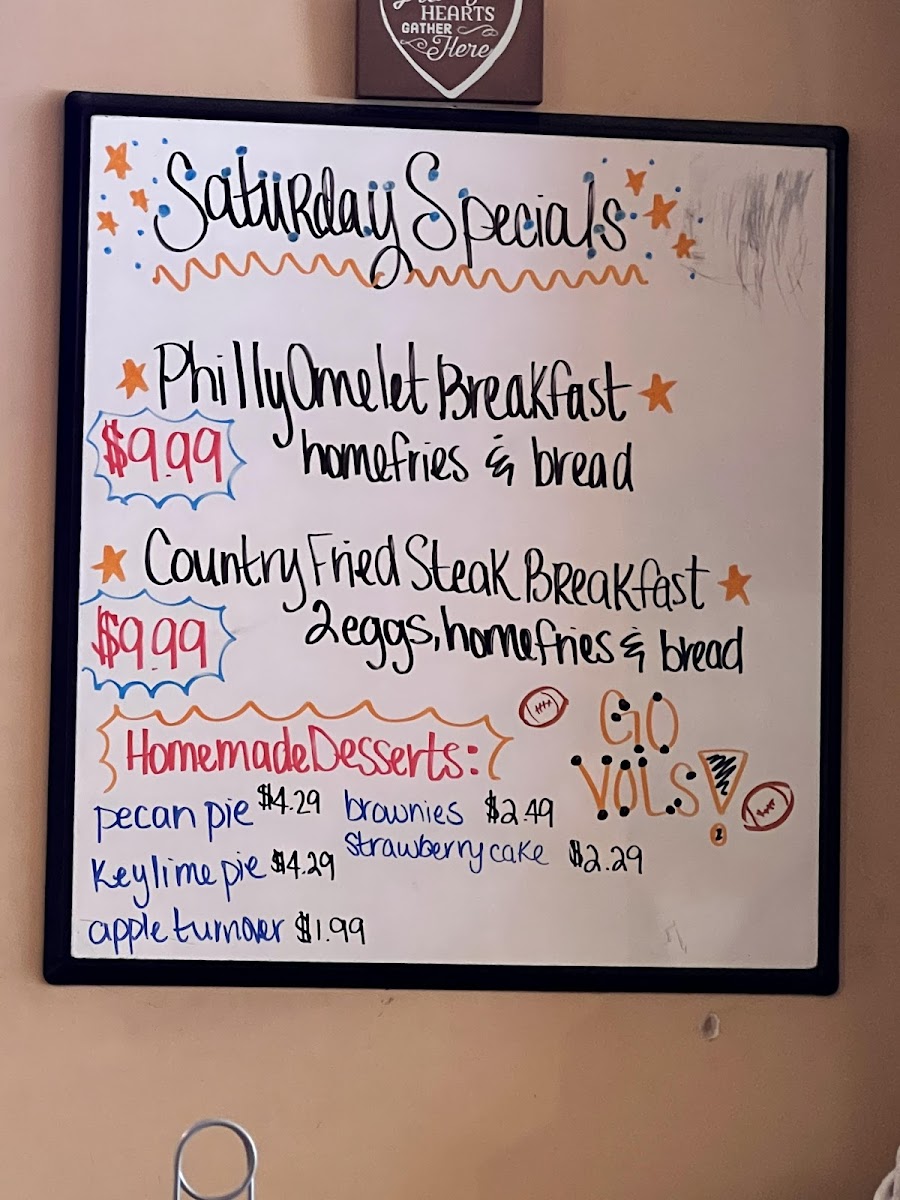 HEARTS
GATHER
Here
Saturday Specials
Philly Omelet Breakfast
$9.99 homefries & bread
Country Fried Steak Breakfast
$9.99 2 eggs, homefries & bread
Homemade Desserts:
GO
VOLS!
pecan pie $4.29 brownies $2.49
Keylime pie $4.29 strawberry cake $2.29
apple turnover $1.99